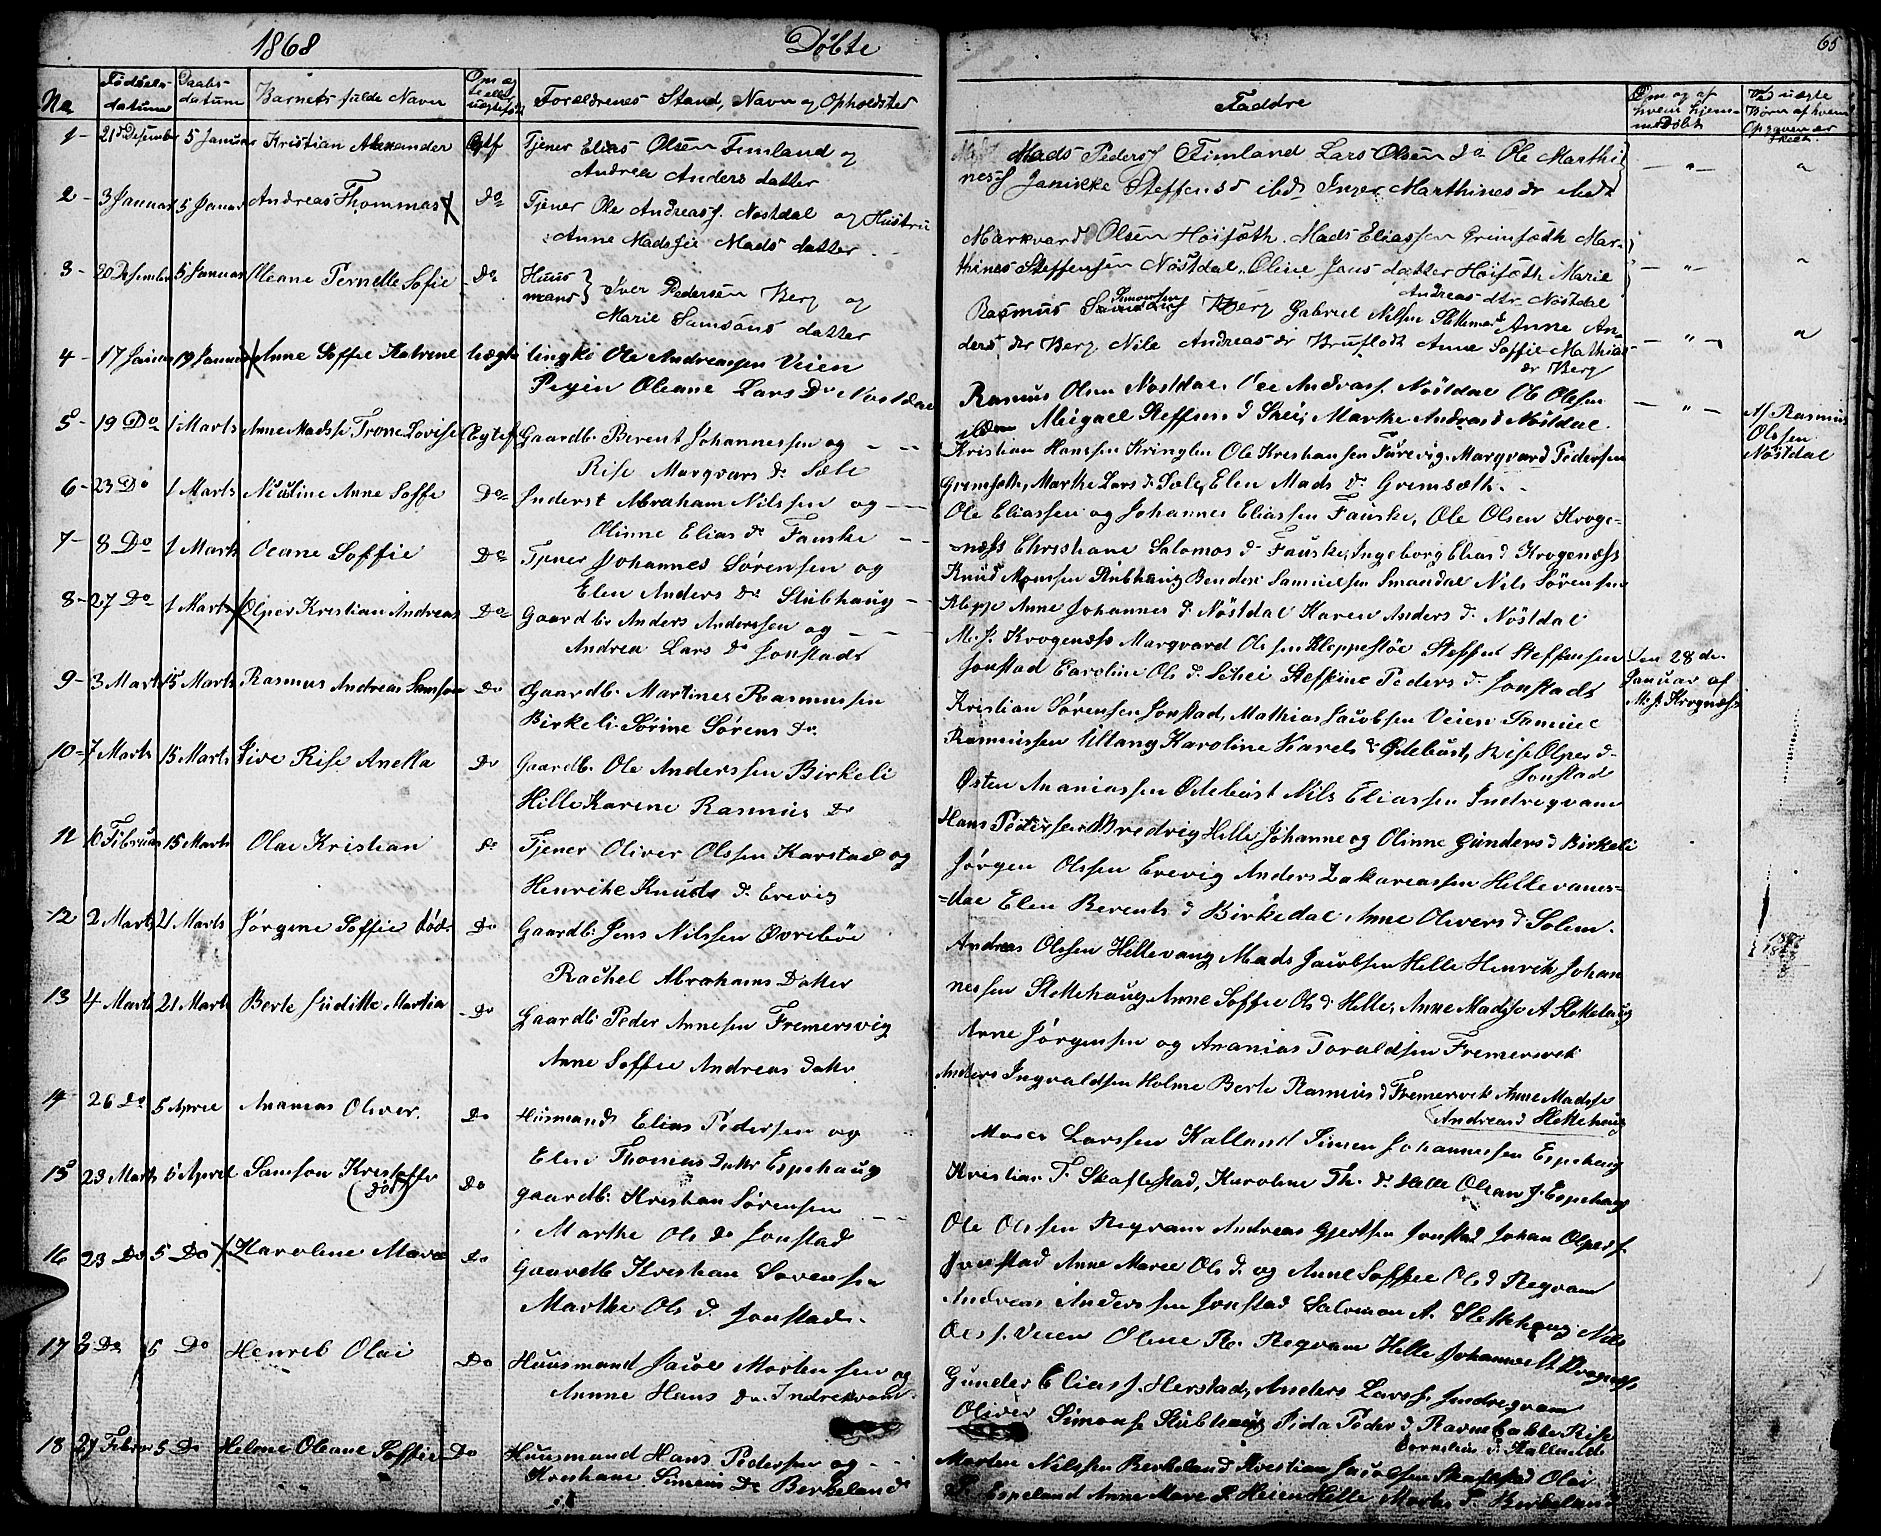 1868 Døbte
65
No Fødsels- datum Daabs- datum Barnets fulde Navn Om ægte eller uægtefød Forældrenes Stand, Navn og Opholdsted
Faddre Om og af hvem hjemmedøbt Opgaven er skeet
1 - 21de Desember 5 Januar Kristian Alexander Ægtf Tjener Elias Olsen Fimland og
Andrea Anders datter
Mads Peders Fimland Lars Olsen do Ole Marthi
nes Janikke Steffens d Inger Marthines dr
2 - 3 Januar 5 Januar Andreas Thommas Do Tjener Ole Andreas. Nøstdal og Hustru
Anne Madsfie Mads datter
Markvard Olsen Høisæth Mads Eliassen Grimsæth Mar-
thines Steffensen Nøstdal, Oline Jens datter Høisæth Marie
Andreas dtr. Nøstdal
3 - 20 Desember 5 Januar Oleane Pernelle Sofie Do Huus
mand Iver Pedersen Berg og
Marie Samsons datter
Rasmus Simonsen Berg Gabriel Nilsen Slettemark Anne An
ders dr Berg Nile Andreas dr Bruflot Anne Soffie Mathias
dr Berg
4 - 17 Januar 19 Januar Anne Soffie Katrine Uægte Ungk Ole Andreassen Veien
Pigen Oleane Lars Dr Nøstdal
Rasmus Olsen Nøstdal, Ole Andreas. Nøstdal Ole Olsen
Abigael Steffens d Skei, Marthe Andreas d Nøstdal.
Af Rasmus
Olssen
Nøstdal
5 - 19 Do 1 Marts Anne Madsfi Trone Lovise Ægtef Gaardb. Berent Johannessen og
Rise Marqvars Dr Sæle
Kristian Hanssen Kringlen Ole Kreshansen Furevig, Marqvard Pedersen
Grimsæth, Marthe Lars d Sæle, Elen Mads D. Grimsæth.
6 - 23 Do 1 Marts Nicoline Anne Soffie Do Inderst Abraham Nilssen og
Olinne Elias Dr Fauske
Ole Eliassen og Johannes Eliassen Fauske, Ole Olsen Kroge-
næss Christiane Salomos d. Fauske, Ingeborg Elias d Krogenæss
7 - 8 Do 1 Marts Oleane Soffie Do Tjener Johannes Sørensen og
Elen Anders Dr Stubhaug
Knud Monsen Stubhaug Bendix Samuelsen Smaadal Nils Sørensen
Kleppe Anne Johannes d. Nøstdal Karen Anders d. Nøstdal
8 - 27 Do 1 Marts Olper Kristian Andreas Do Gaardb. Anders Anderssen og
Andrea Lars Dr Jonstad
M. J. Krogenæss Marqvard Olssen Kleppestøe Steffen Steffensen
Jonstad Caroline Ols d. Schei Steffine Peders d. Jonstad
Den 28de
Januar af
M. J. Krogenæss
9 - 3 Marts 15 Marts Rasmus Andreas Samson Do Gaardb. Martines Rasmussen
Birkeli Sørine Sørens Dr.
Kristian Sørensen Jonstad, Mathias Jacobsen Veien Samuel
Rasmussen Ullang Karoline Karels d Ødebust, Rise Olper d
Jonstad
10 - 7 Marts 15 Marts Sive Rise Anella Do Gaardb. Ole Anderssen Birkeli
Hille Karene Rasmus Dr
Østen Ananiassen Ødebust Nils Eliassen Indreqvam
Hans Pedersen Bredvig Helle Johanne og Olinne Gunders d Birkeli
11 10 Februar 15 Marts Olai Kristian Do Tjener Oliver Olssen Karstad og
Henrike Knuds d. Erevig
Jørgen Olssen Erevig Anders Zakareassen Hellevangs-
dal Elen Berents d Birkedal Anne Olivers d. Solem.
12 2 Marts 21 Marts Jørgine Soffie død Do Gaardb: Jens Nilssen Øvrebøe
Rachel Abrahams Datter
Andreas Olssen Hellevang Mads Jacobsen Helle Henrik Johan
nessen Slettehaug, Anne Soffie Ols d. Helle, Anne Madsfe A Slettehaug
13 4 Marts 21 Marts Berte Juditte Martia Do Gaardb. Peder Annesen Fremersvig
Anne Soffie Andreas Datr
Arne Jørgensen og Ananias Toraldsen Fremersvik
Anders Ingvaldsen Holme Berte Rasmus d Fremersvik Anne Madsfe
Andreas d Slettehaug
14 26 Do 5 April Ananias Oliver. Do Husmand Elias Pedersen og
Elen Thomas Datr Espehaug
Moses Larssen Kalland Simen Johannessen Espehaug
Kristian T. Skaflestad, Karoline Th. d Helle Olean J. Espehaug
15 23 Marts 5 April Samson Krestoffer
(død) Do Gaardb. Kristian Sørensen
Marthe Ols Dr Jonstad
Ole Olssen Regvam Andreas Gjertsen Jonstad Johan Olpers
Jonstad Anne Marie Ols d. og Anne Soffie Ols d Regvam
16 23 Do 5 Do Karoline Marie Do Gaardb Kristian Sørensen
Marthe Ols d. Jonstad.
Andreas Anderssen Jonstad Salomon A. Slettehaug Nils
Ols. Veien Oline R. Regvam Helle Johanne M Krogenæss
17 3 Do 5 Do Henrik Olai Do Huusmand Jacob Mortensen og
Annne Hans Dr. Indrekvam
Gunder Elias. Herstad, Anders Larss. Indreqvam
Oliver Simons. Stubhaug Sida Peder d Ravnebakke Rise
Cornelius d. Kalland
18 27 Februar 5 Do Helene Oleane Soffie Do Huusmand Hans Pedersen og
Simeus Dr Berkeland
Morten Nilssen Berkeland Kristian Jacobsen Skaflestad Olai
Espeland Anne Mare P. Helle Marthe P. Berkeland